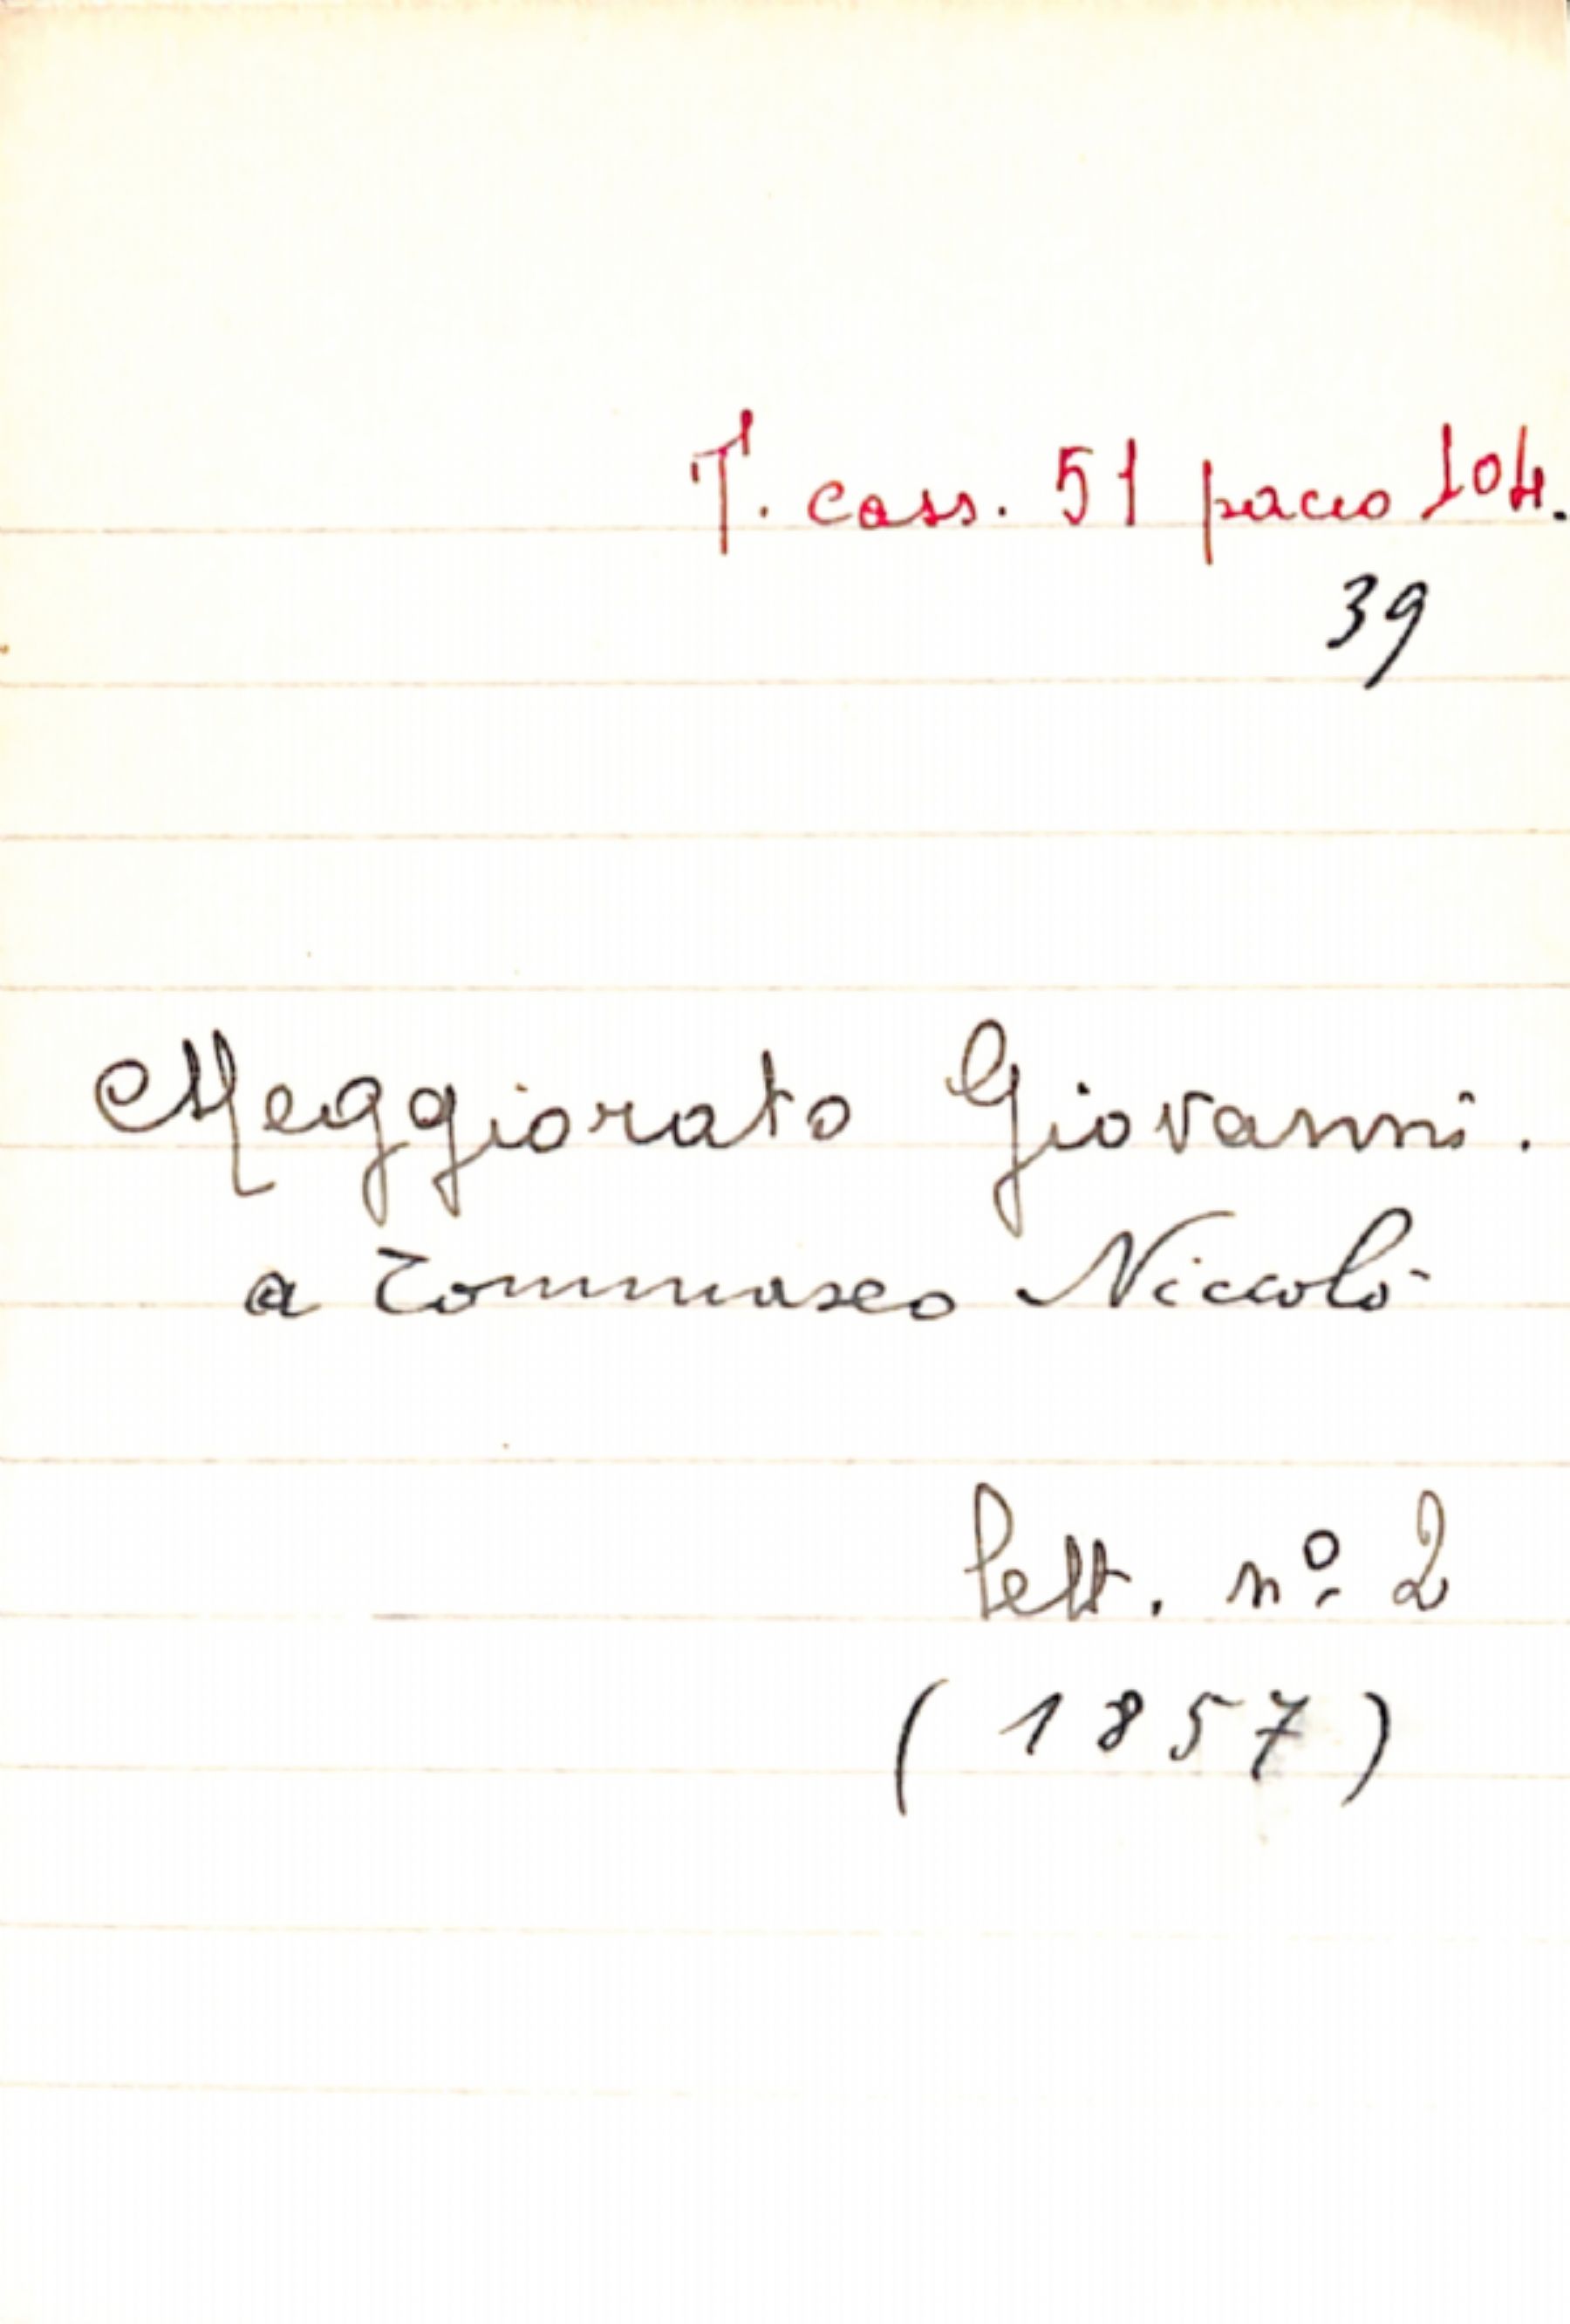 T. cass. 51 pacco 104.
39
Meggiorato Giovanni.
a Tommaseo Niccolò
lett. nº 2
(1857)